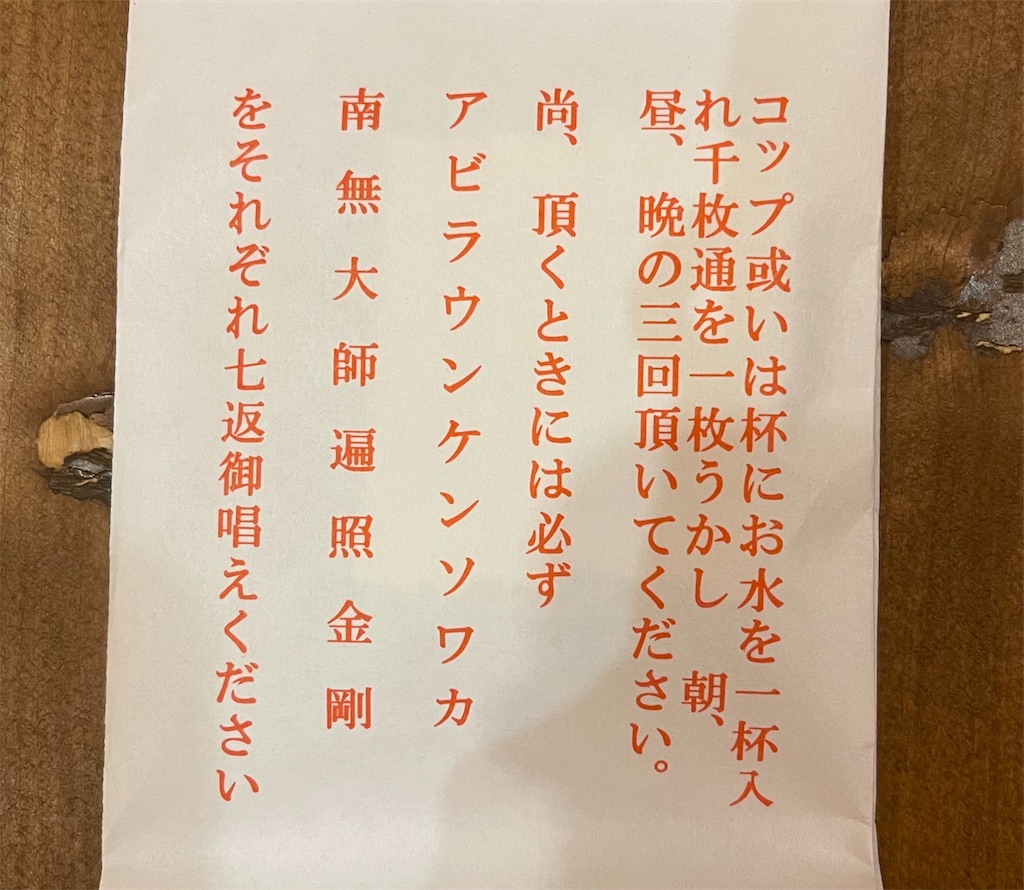 コップ或いは杯にお水を一杯入
れ千枚通を一枚うかし　朝、
昼、晩の三回頂いてください。
尚、頂くときには必ず
アビラウンケンソワカ
南無大師遍照金剛
をそれぞれ七返御唱えください